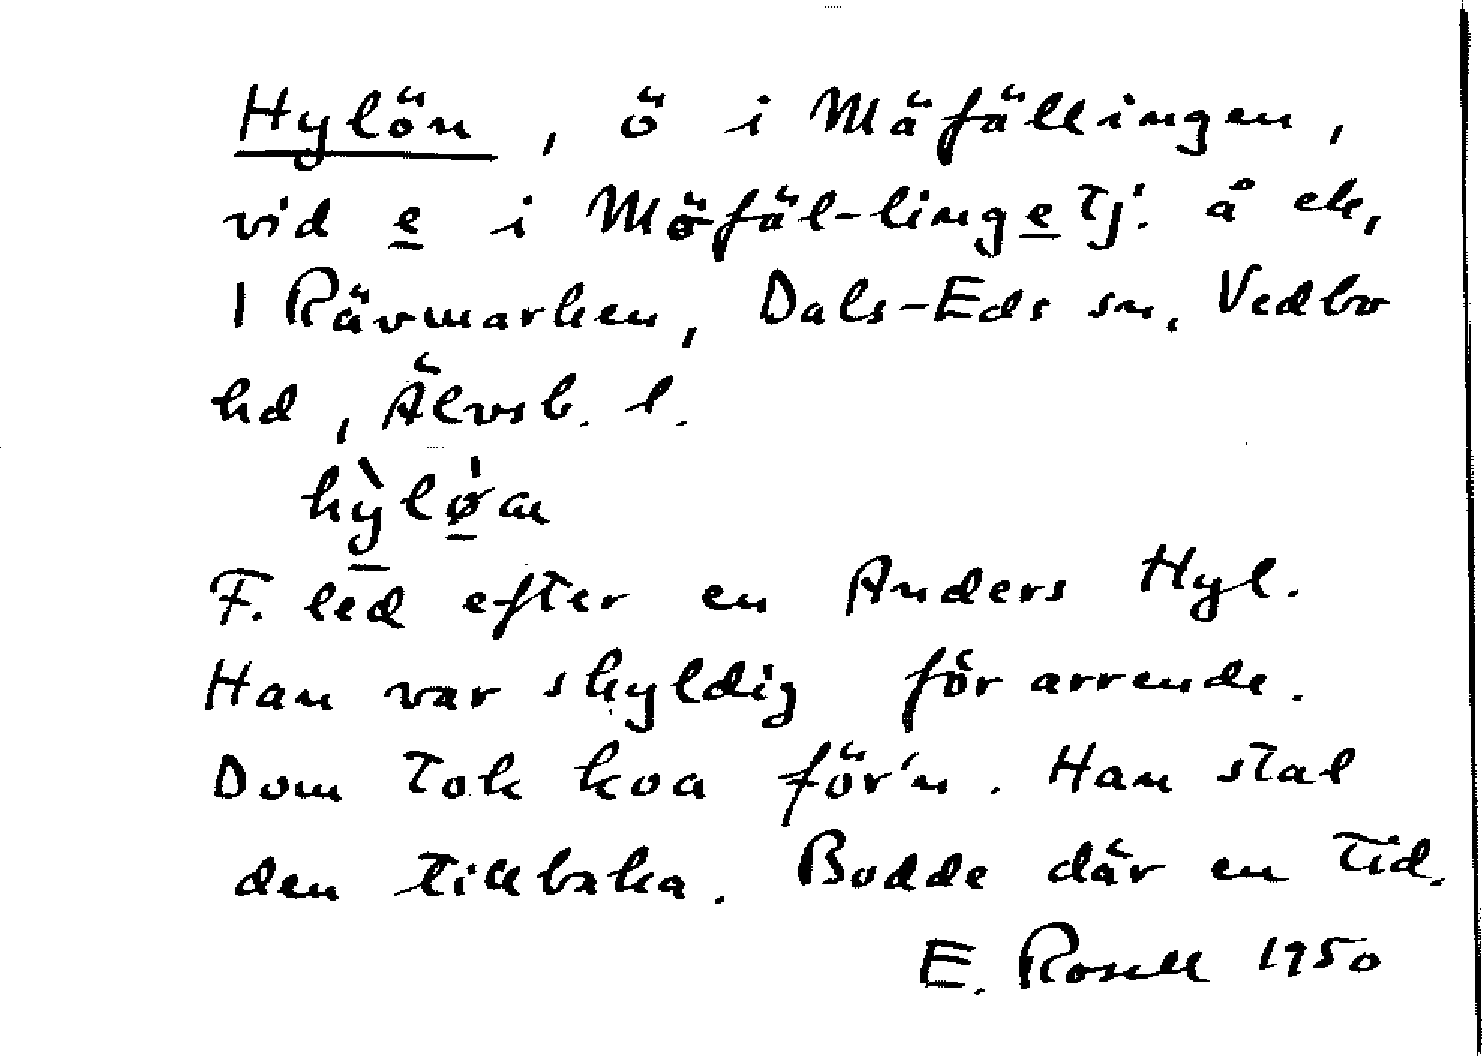 Hylön, ö i Mäfällingen,
vid e i Möfäl-linge tj. å ek,
1 Rävmarken, Dals-Eds sn, Vedbo
hd, Älvsb. l.
hỳlø̀n
F. led efter en Anders Hyl.
Han var skyldig för arrende.
Dom tok koa för'n. Han stal
den tillbaka. Bodde där en tid.
E. Rosell 1950